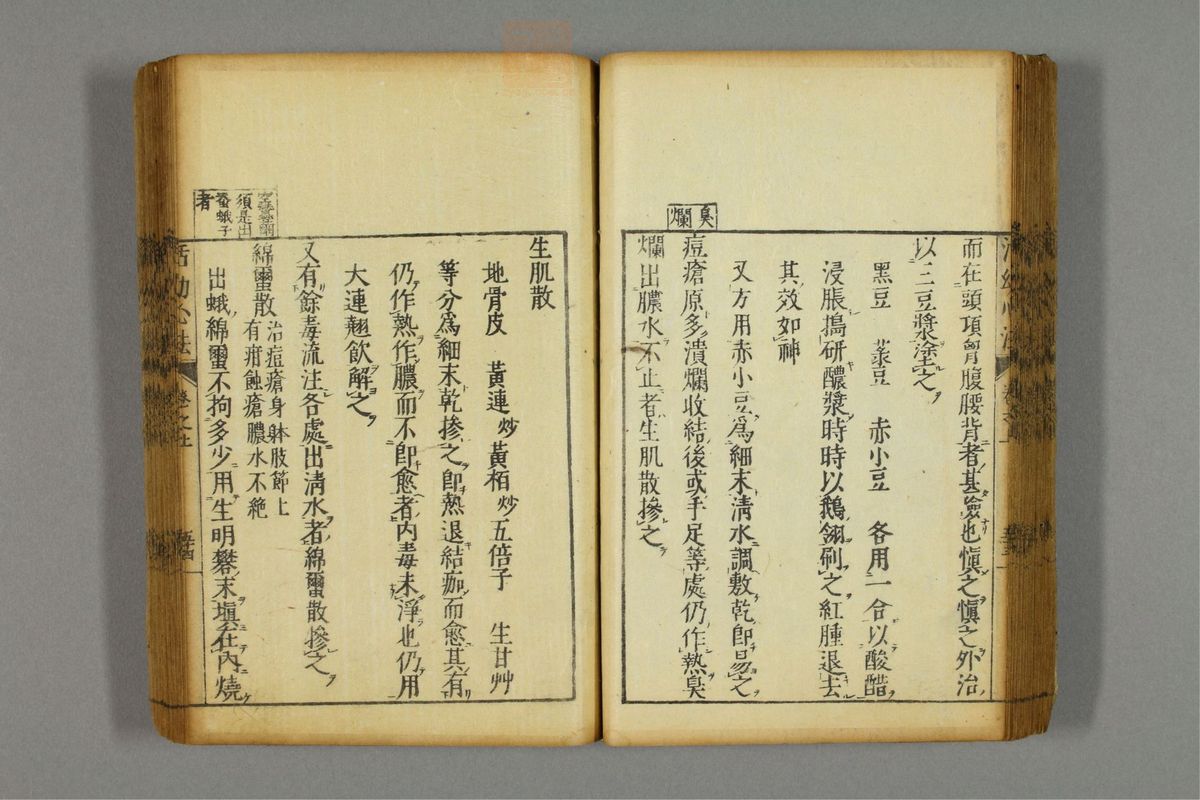 臭
爛
而在頭項胷腹腰背者甚險也愼之愼之外治
以三豆漿塗之
黑豆 菉豆 赤小豆 各用一合以酸醋
浸脹搗研醲漿時時以鵝翎刷之紅腫退去
其效如神
又方用赤小豆爲細末淸水調敷乾卽易之
痘瘡原多潰爛收結後或手足等處仍作熱臭
爛出膿水不止者生肌散摻之
生肌散
地骨皮 黃連炒 黃栢炒 五倍子 生甘艸
等分爲細末乾摻之卽熱退結痂而愈其有
仍作熱作膿而不卽愈者內毒未淨也仍用
大連翹飮解之
又有餘毒流注各處出淸水者綿蠒散摻之
須是出
蚕蛾子
者
綿蠒散治痘瘡身躰肢節上
有疳蝕瘡膿水不絶
出蛾綿蠒不拘多少用生明礬末塡在內燒
活幼心法